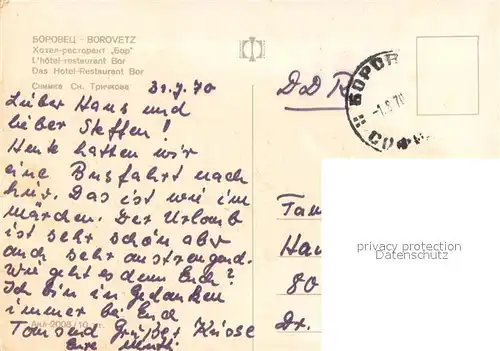 БОРОВЕЦ - BOROVETZ
Хотел-ресторант „Бор"
L'hôtel-restaurant Bor
Das Hotel-Restaurant Bor
Снимка Сн. Тричкова
31.7.70
Lieber Hans und
lieber Steffen!
Heute hatten wir
eine Busfahrt nach
hier. Das ist wie im
Märchen. Der Urlaub
ist sehr schön aber
auch sehr anstrengend.
Wie geht es denn Euch?
Ich bin in Gedanken
immer bei Euch
Tausend Grüße Küsse
Eure Mutti
DDR
БОРОВ
-1.8.70
СОФИ
Tan
Han
80
Dr.
privacy protection
Datenschutz